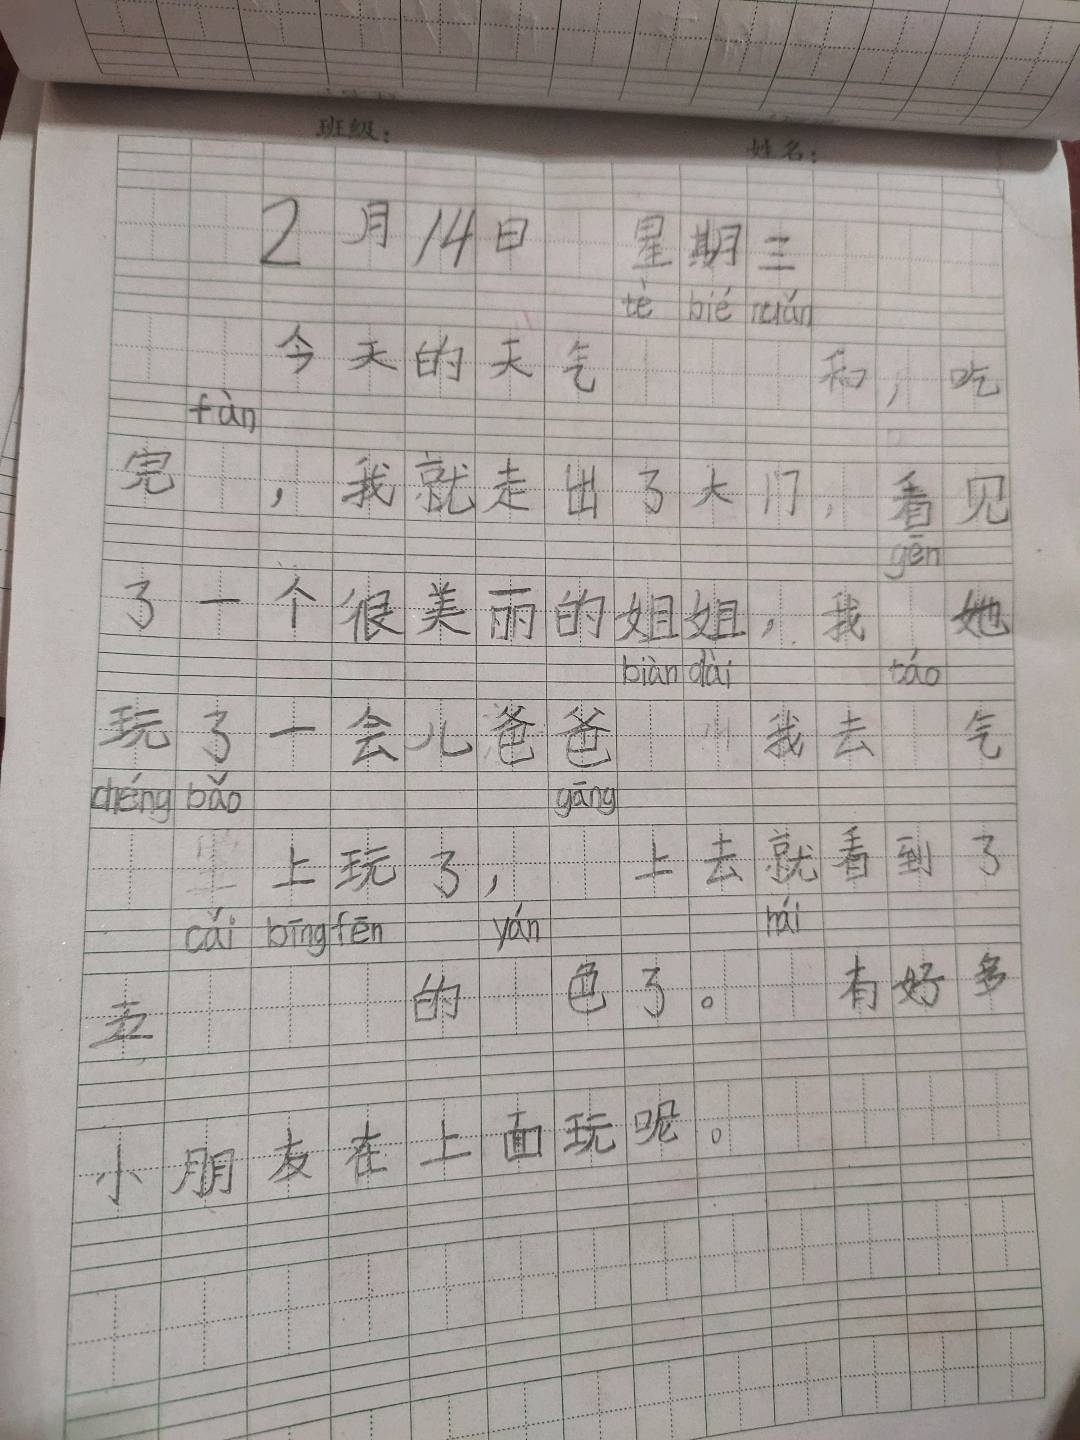 班级： 姓名：
2月14日 星期三
tè bié nuǎn
今天的天气 和，吃
fàn
完 ，我就走出了大门，看见
gēn
了一个很美丽的姐姐，我 她
biàn dài táo
玩了一会儿爸爸 我去 气
chéng bǎo gāng
上玩了， 上去就看到了
cǎi bīng fēn yán hái
五 的 色了。 有好多
小朋友在上面玩呢。